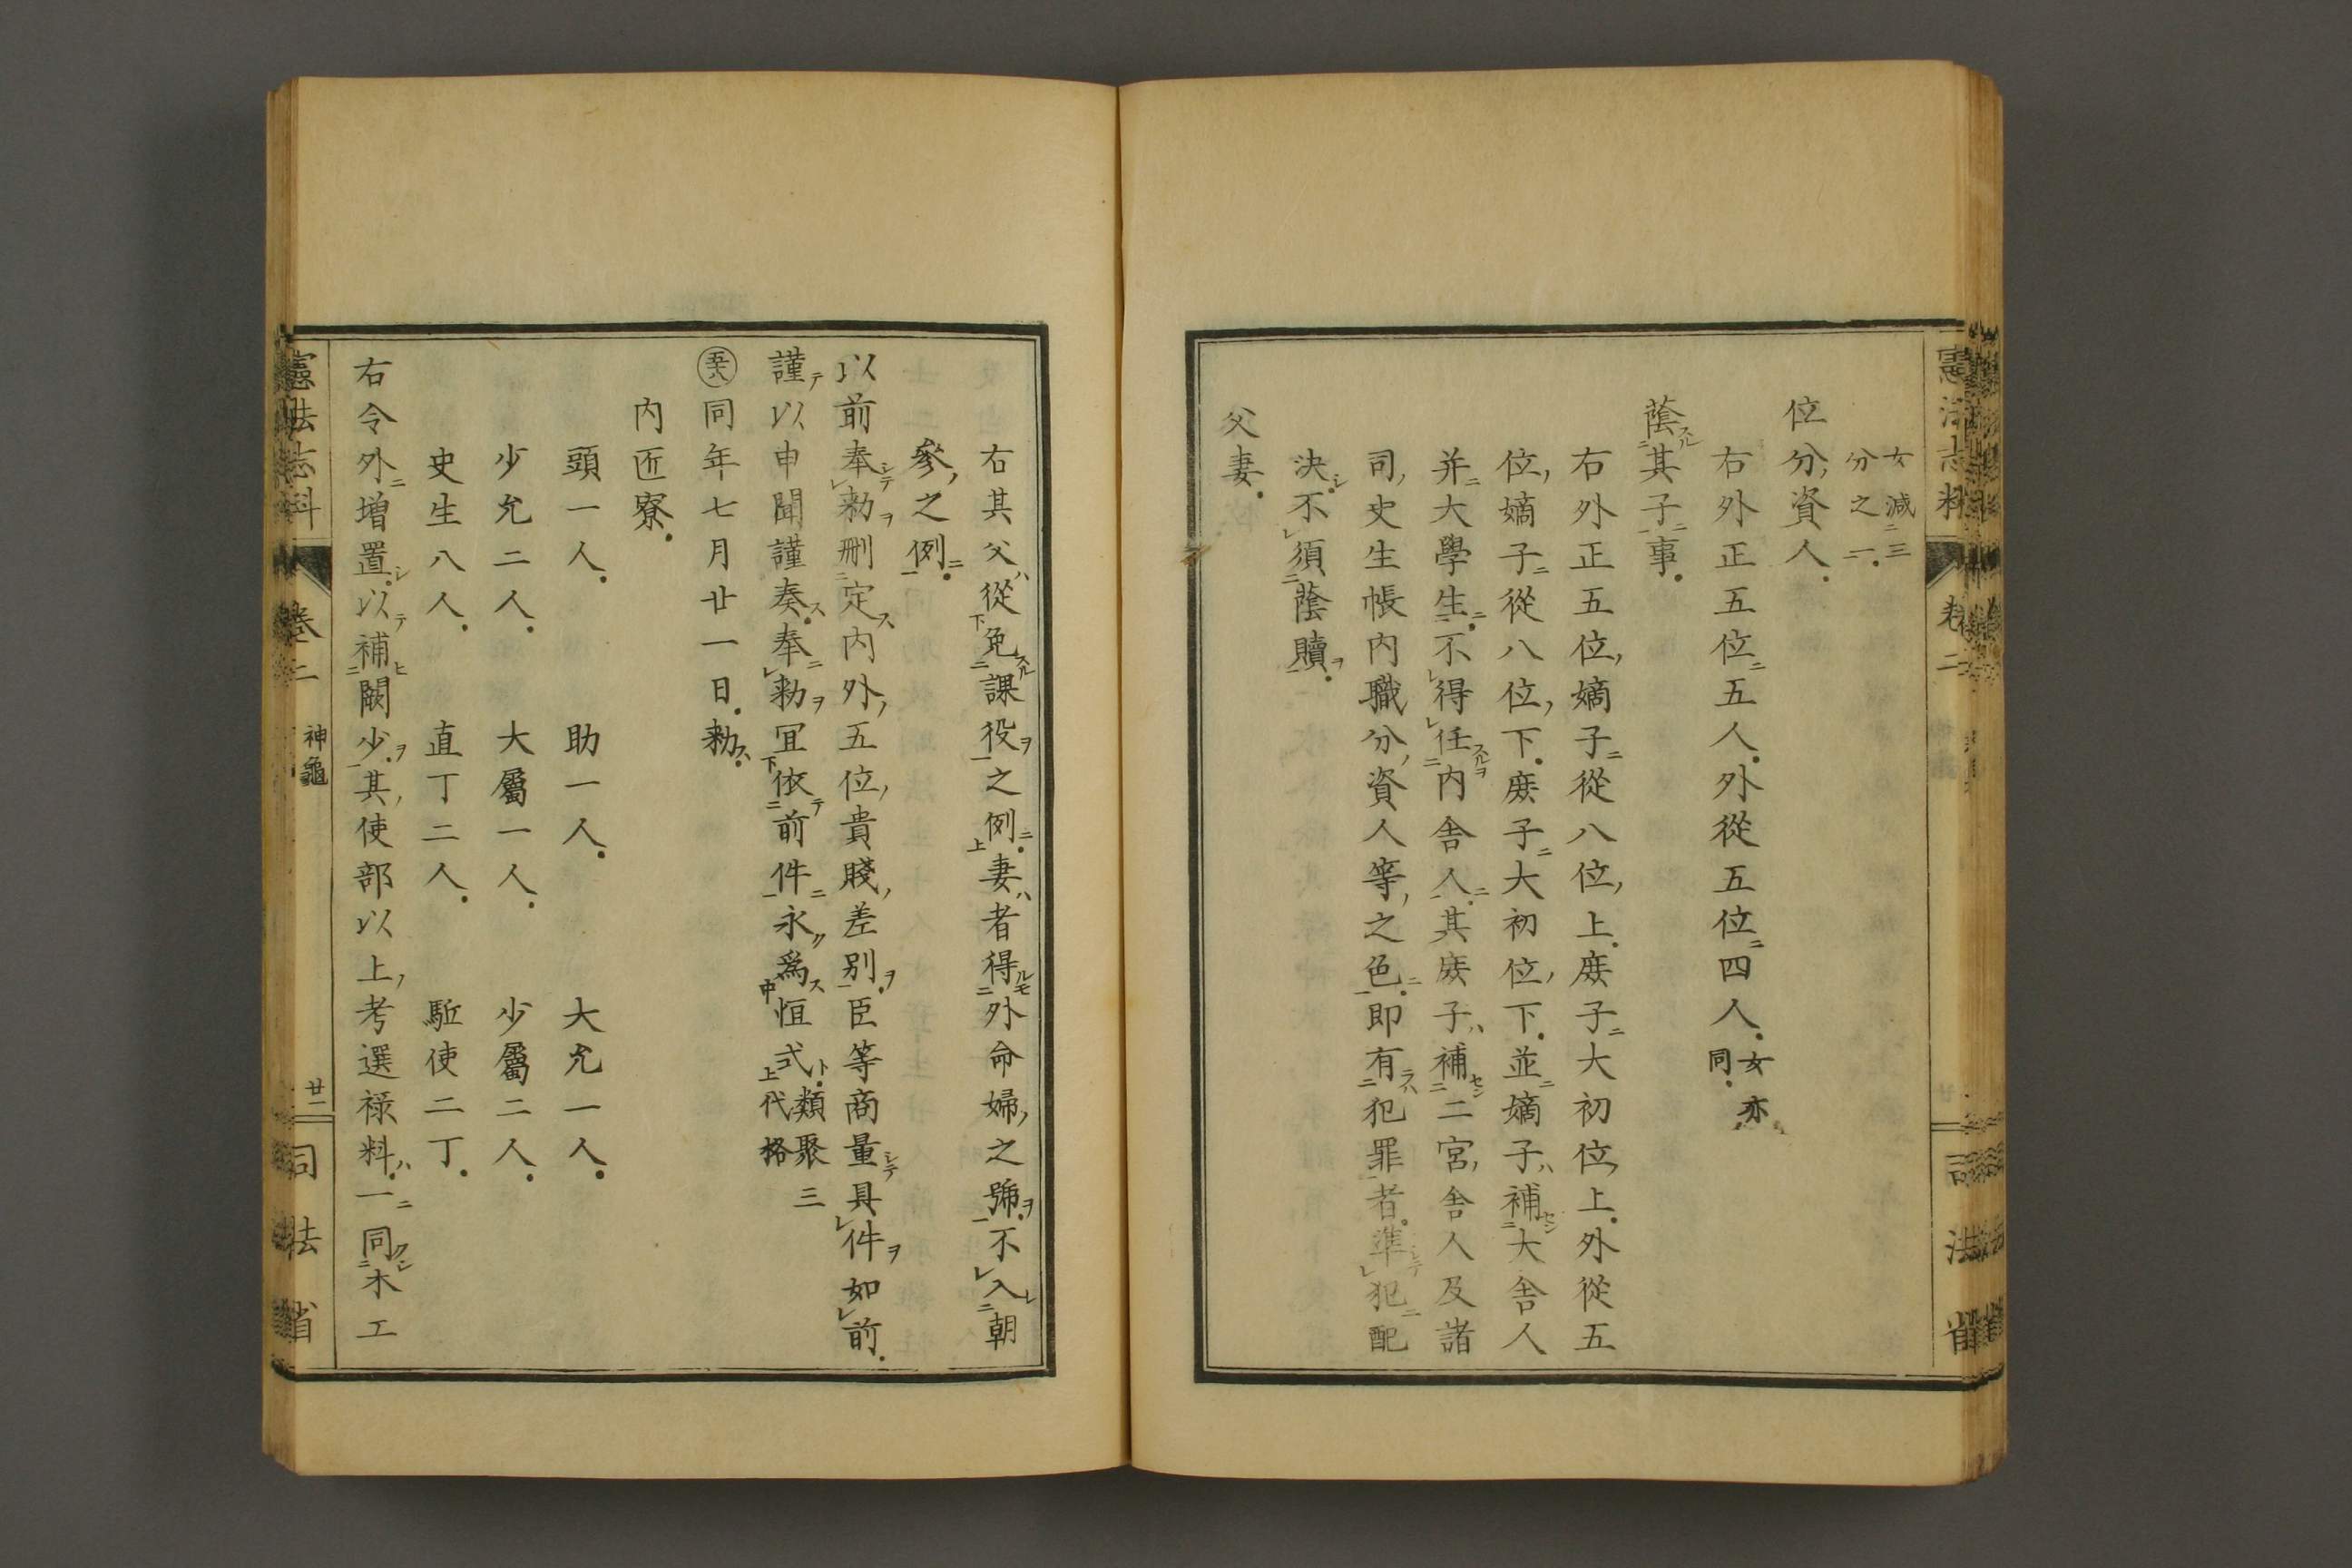 憲法志料 卷二 司法省
女減三
分之一
位分資人
右外正五位五人外從五位四人女亦同
蔭其子事
右外正五位嫡子從八位上庶子大初位上外從五
位嫡子從八位下庶子大初位下並嫡子補大舍人
并大學生不得任內舍人其庶子補二宮舍人及諸
司史生帳內職分資人等之色即有犯罪者準犯配
決不須蔭贖
父妻
右其父從免課役之例妻者得外命婦之號不入朝
參之例
以前奉勅刪定內外五位貴賤差別臣等商量具件如前
謹以申聞謹奏奉勅宜依前件永爲恒式類聚三代格
同年七月廿一日勅
內匠寮
頭一人 助一人 大允一人
少允二人 大屬一人 少屬二人
史生八人 直丁二人 駈使二丁
右令外增置以補闕少其使部以上考選祿料一同木工
憲法志料 卷二 神龜 廿一 司法省